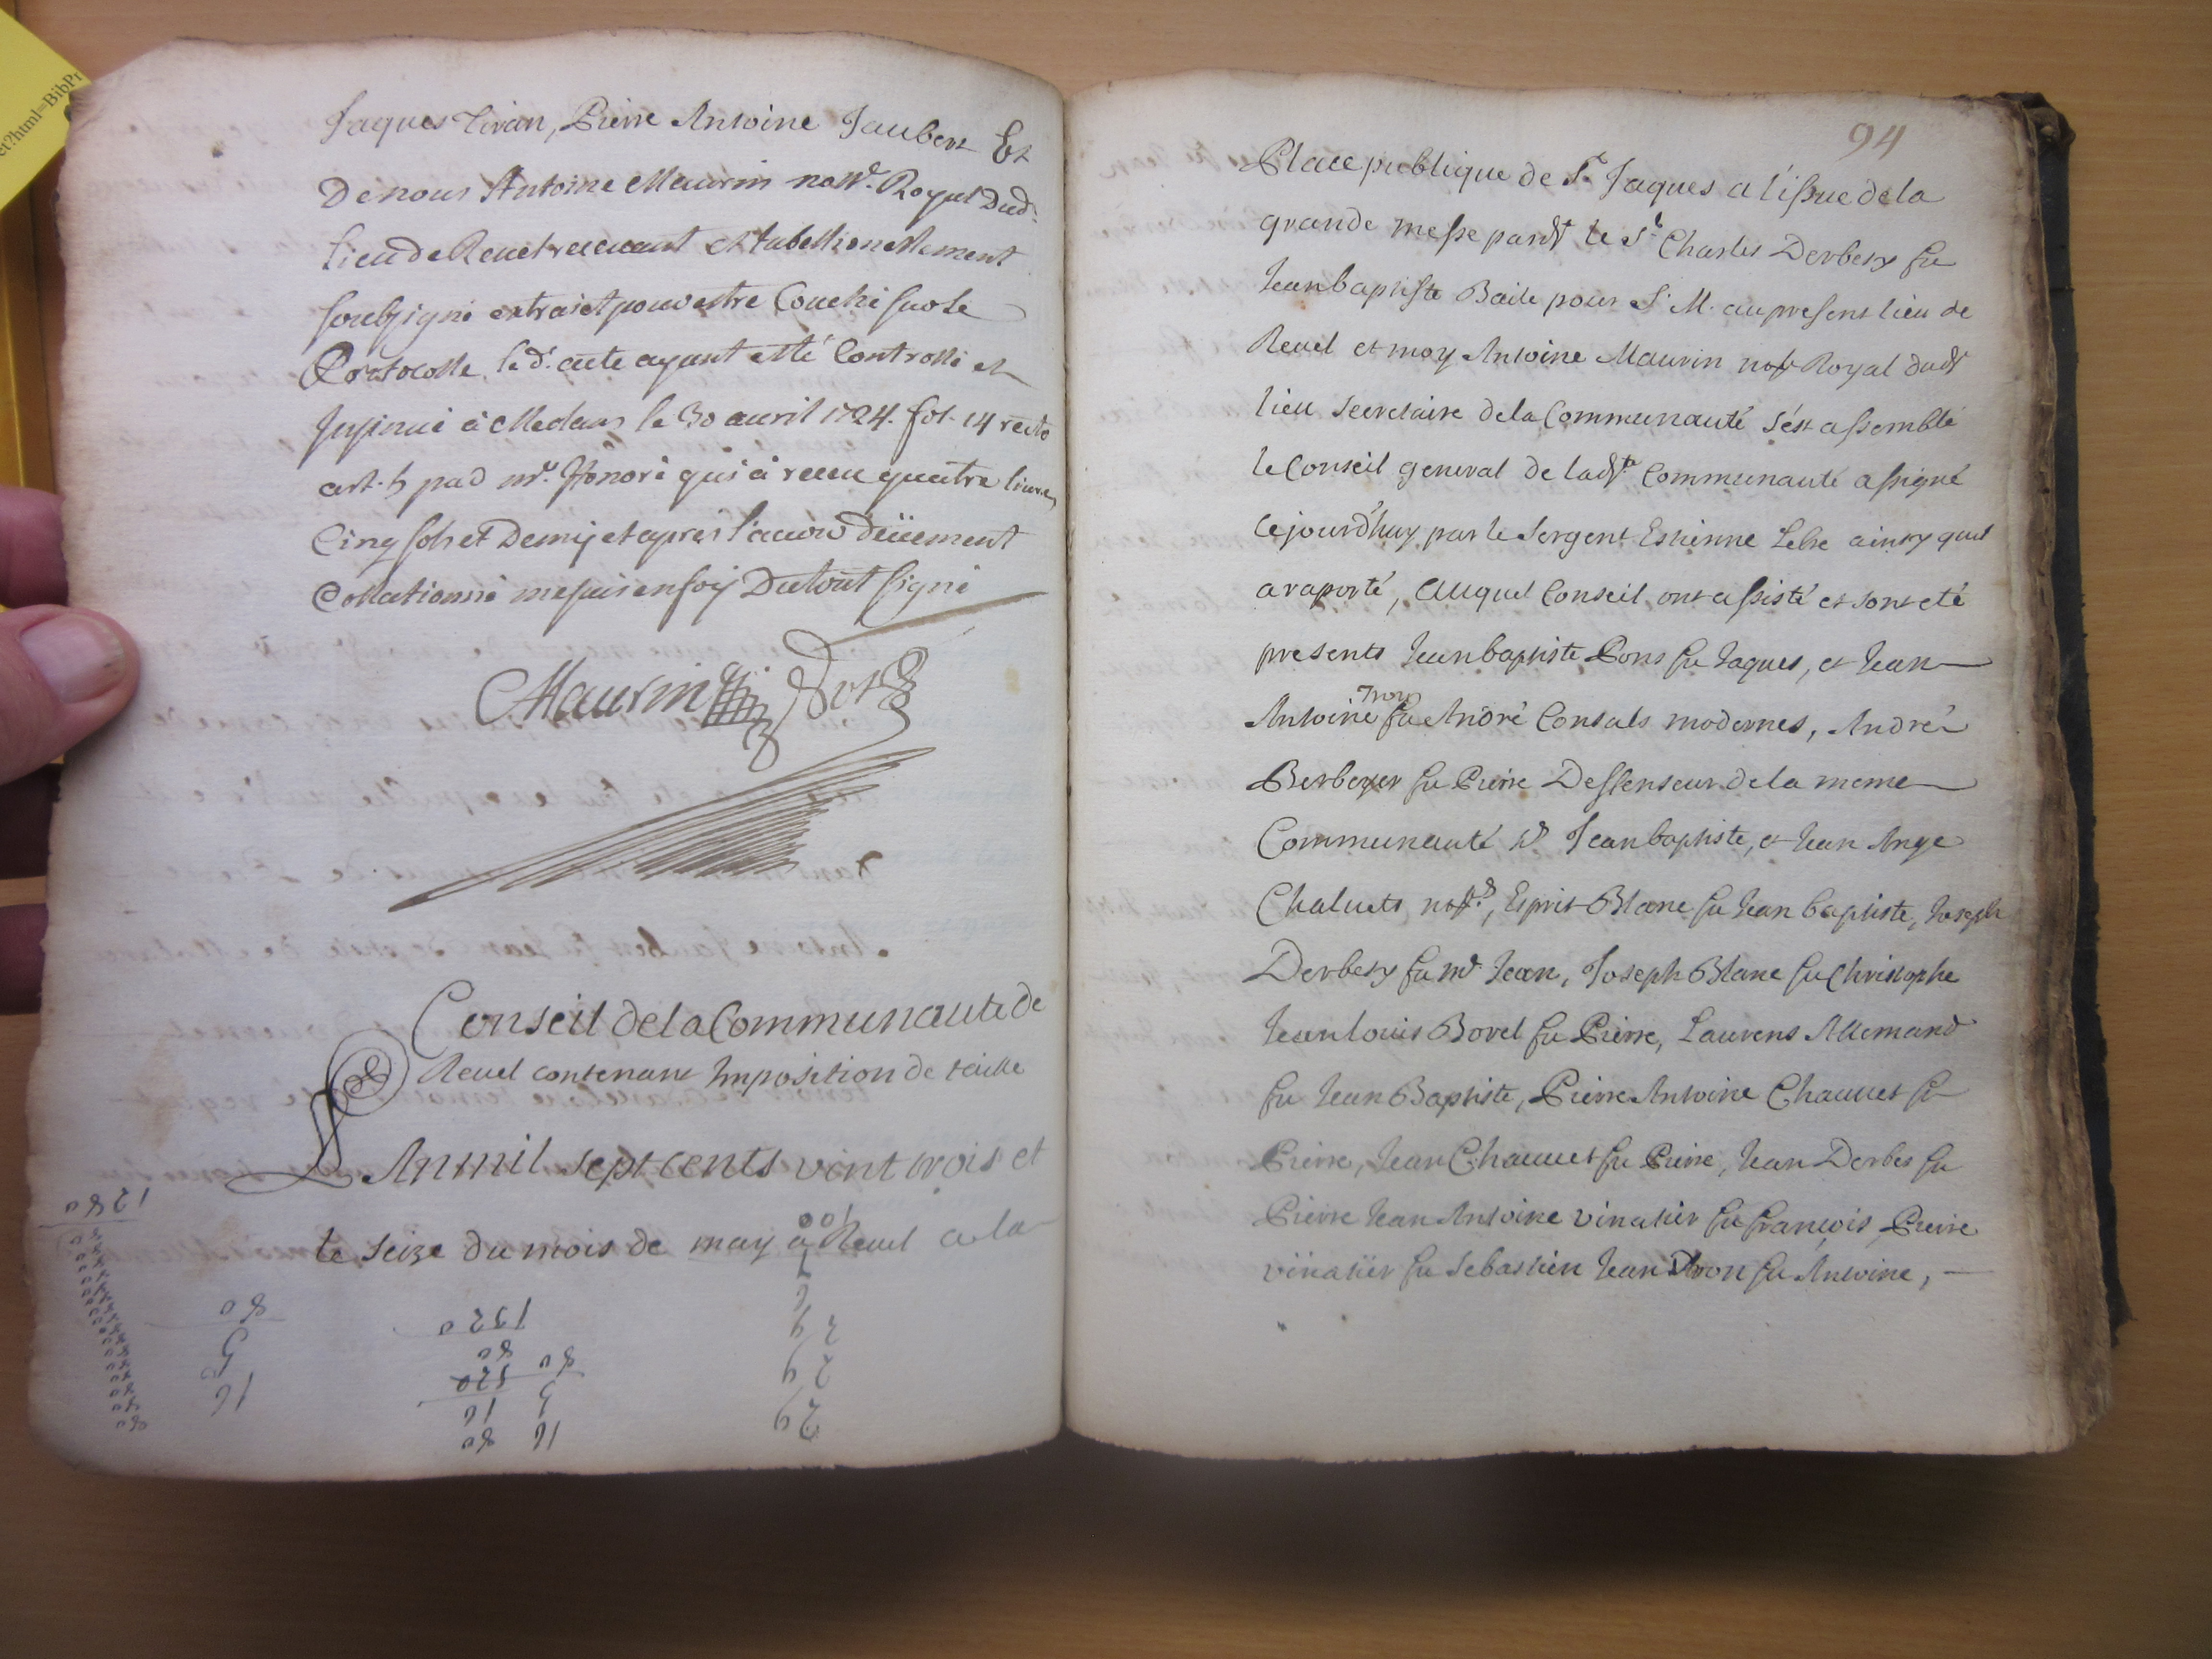 et?html=BibPr
Jaques Tiran, Pierre Antoine Jaubert Et
De nous Antoine Maurin nott.e Royal Dud.
lieu de Reuel receuant et tabellionellement
soubsigné extraict pour estre Couché sur le
Protocolle, le d. acte ayant esté Controllé et
Insinué à le 30 auril 1724. fol. 14 recto
art. 5 par m.e Honoré qui à receu quatre liures
Cinq sols et Demy et apres l'auoir düement
Collationné me suis en foy Du tout signé
Maurin not
Conseil de la Communauté de
Reuel contenant Imposition de taille
L'An mil sept cents vint trois et
le seize du mois de may à Reuel a la
100
1280
80
5
16
1320
80
520
16
80
80
5
16
29
29
94
Place publique de S.t Jaques a l'issue de la
grande messe pardt le S.r Charles Derbesy fu
Jean baptiste Baile pour S. M. au present lieu de
Reuel et moy Antoine Maurin not.e Royal dudt
lieu Secretaire de la Communauté s'est assemblé
le Conseil general de ladt.e Communauté assigné
cejourd'huy par le Sergent Estienne Lebre ainsy quil
a raporté, Auquel Conseil ont assisté et sont eté
presents Jean baptiste Pons fu Jaques, et Jean
Tron
Antoine fu André Consuls modernes, André
Berbeyer fu Pierre Deffenseur de la meme
Communauté Jean baptiste, et Jean Ange
Chaluets not.s, Esprit Blanc fu Jean baptiste, Joseph
Derbesy fu m.e Jean, Joseph Blanc fu Christophe
Jean louis Borel fu Pierre, Laurens Allemand
fu Jean Baptiste, Pierre Antoine Chauuet fu
Pierre, Jean Chauuet fu Pierre, Jean Derbes fu
Pierre Jean Antoine vinatier fu françois, Pierre
vinatier fu Sebastien Jean Tron fu Antoine,